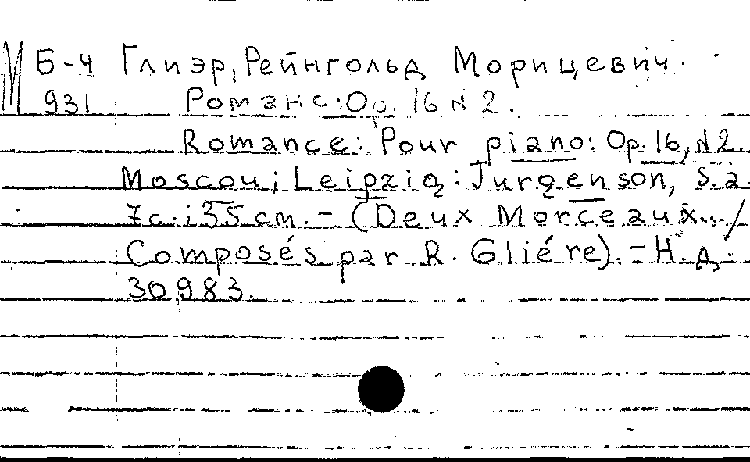 М Б-4 Глиэр, Рейнгольд Морицевич.
931 Романс. Op. 16 N 2.
Romance: Pour piano: Op. 16, N 2.
Moscou; Leipzig: Jurgenson, S.a.
7c.; 35 см. - (Deux Morceaux.../
Composés par R. Gliére). - Н. д.
30983.